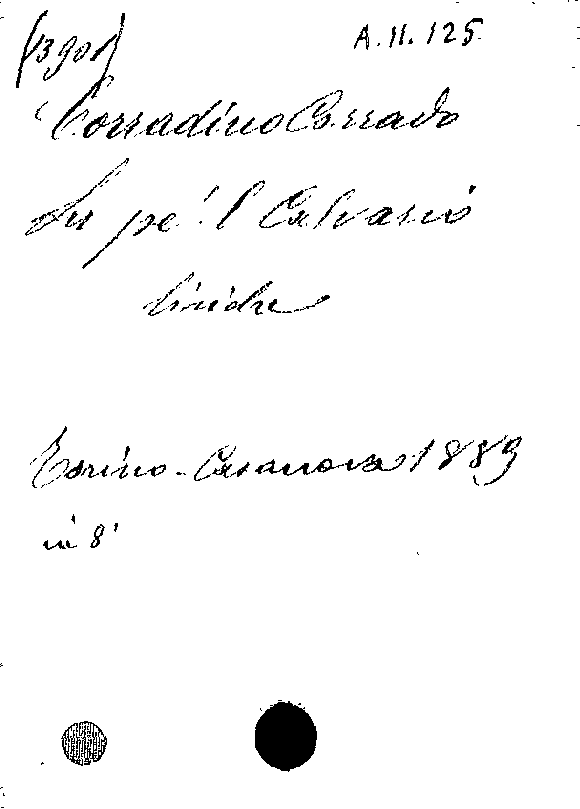 (3901)
A.II.125
Corradino Corrado
Su pe' l Calvario
liriche
Torino - Casanova 1889
in 8°